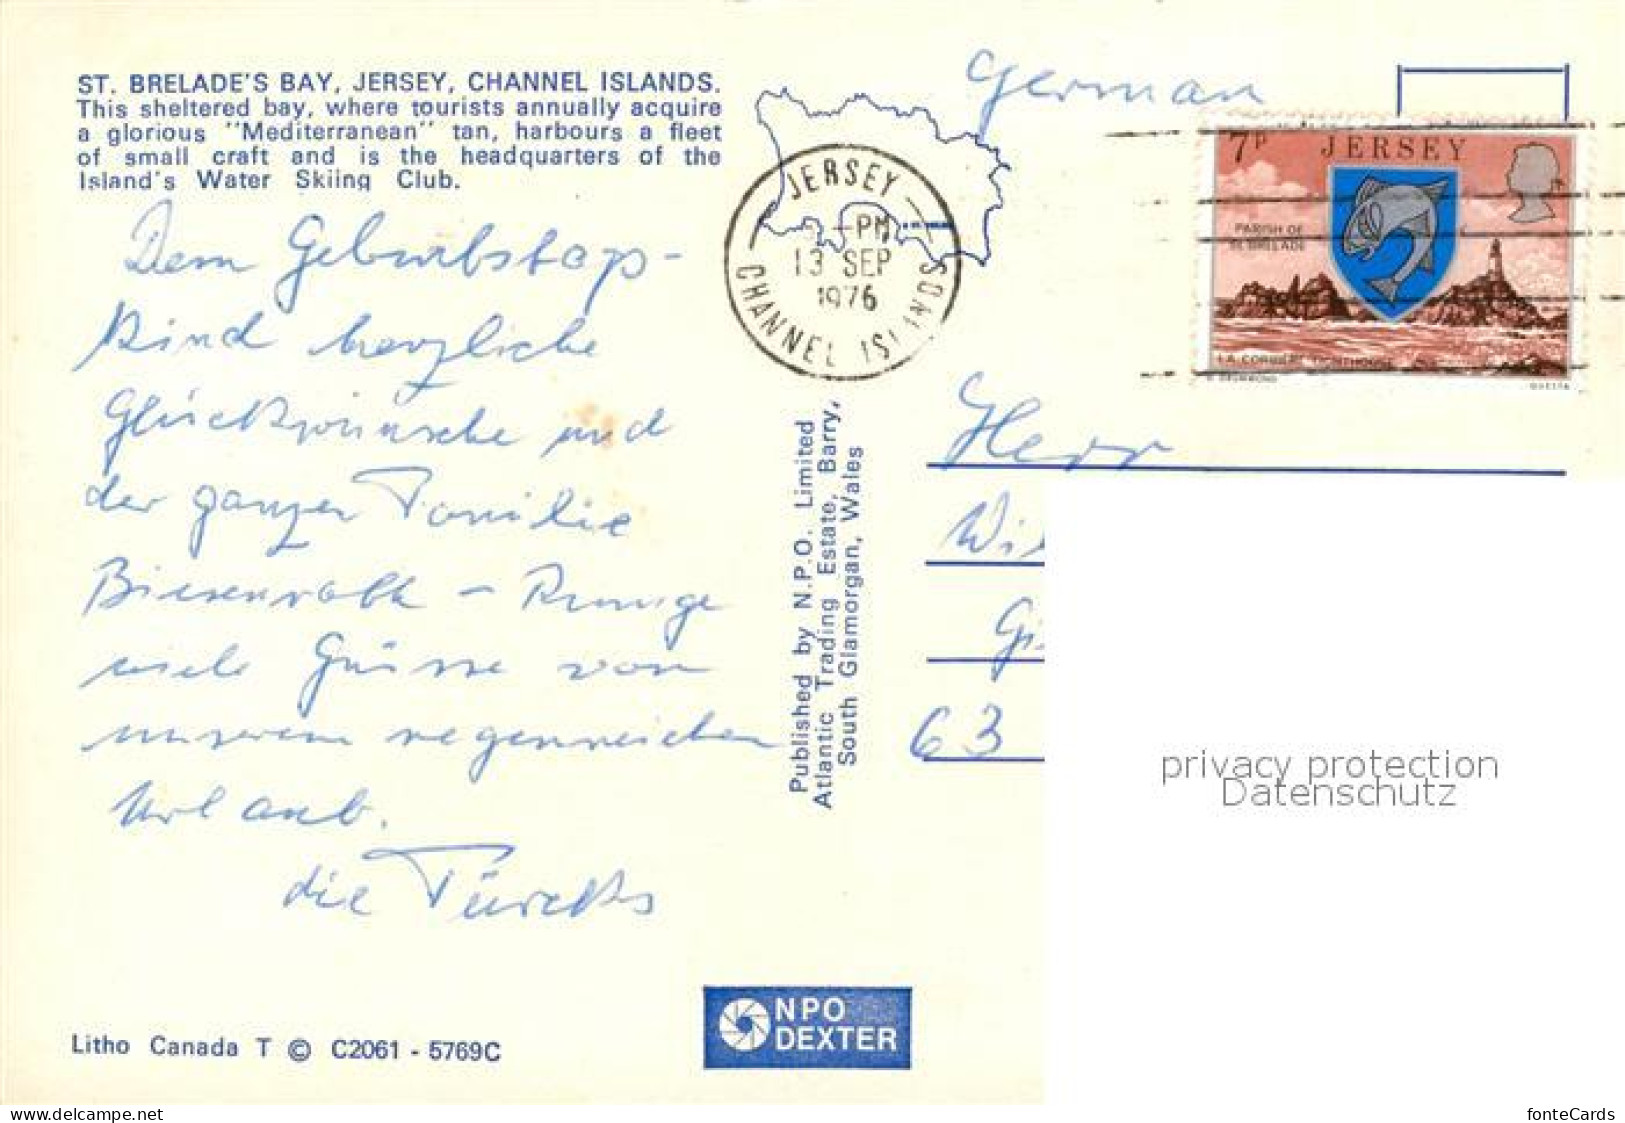 ST. BRELADE'S BAY, JERSEY, CHANNEL ISLANDS.
This sheltered bay, where tourists annually acquire
a glorious "Mediterranean" tan, harbours a fleet
of small craft and is the headquarters of the
Island's Water Skiing Club.
Dem Geburtstags-
kind herzliche
Glückwünsche und
der ganzen Familie
viele Grüsse von
unserem regenreichen
Urlaub.
die Türcks
Litho Canada T © C2061 - 5769C
NPO
DEXTER
Published by N.P.O. Limited
Atlantic Trading Estate, Barry,
South Glamorgan, Wales
JERSEY
PM
13 SEP
1976
CHANNEL ISLANDS
German
7P JERSEY
PARISH OF
ST. BRELADE
LA CORBIERE LIGHTHOUSE
Herr
63
privacy protection
Datenschutz
www.delcampe.net
fonteCards